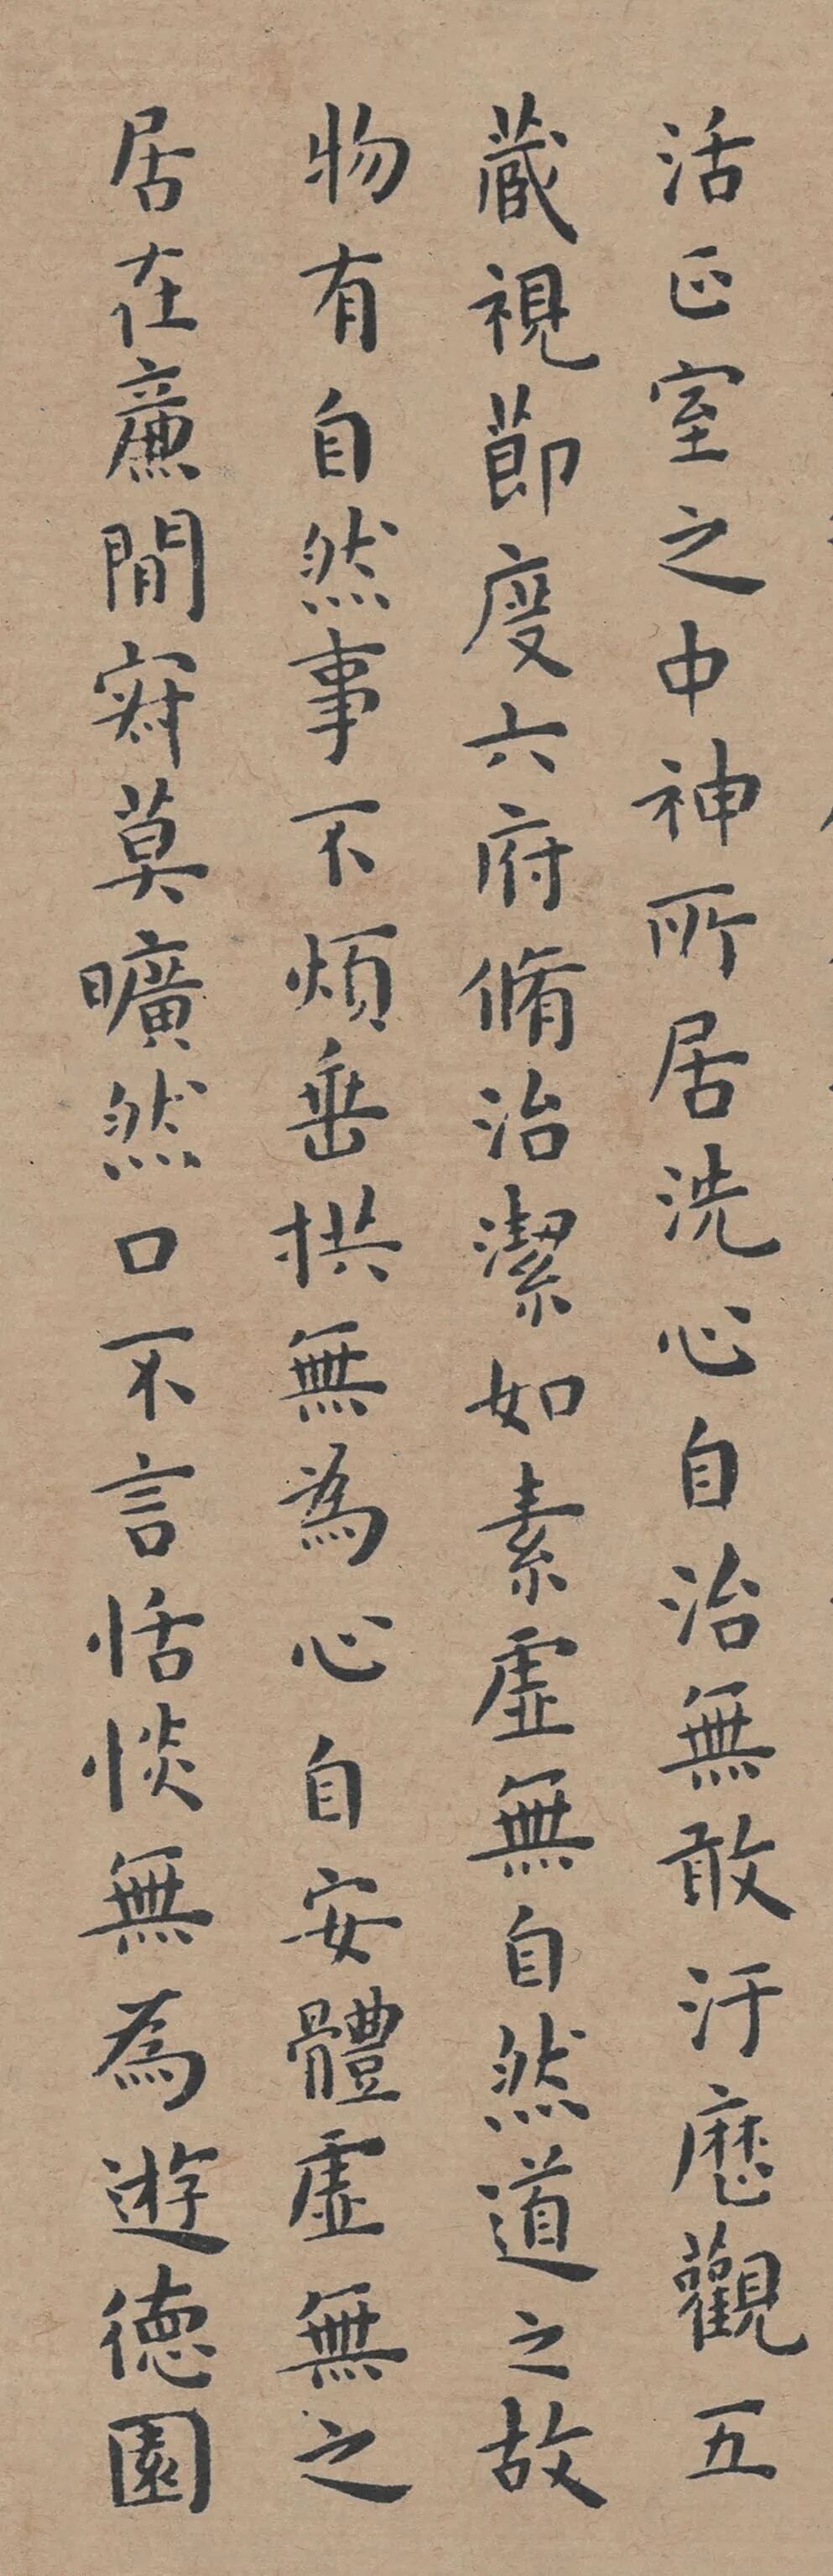 活正室之中神所居洗心自治無敢汙歷觀五
藏視節度六府脩治潔如素虛無自然道之故
物有自然事不煩垂拱無為心自安體虛無之
居在廉間寂莫曠然口不言恬惔無為遊德園